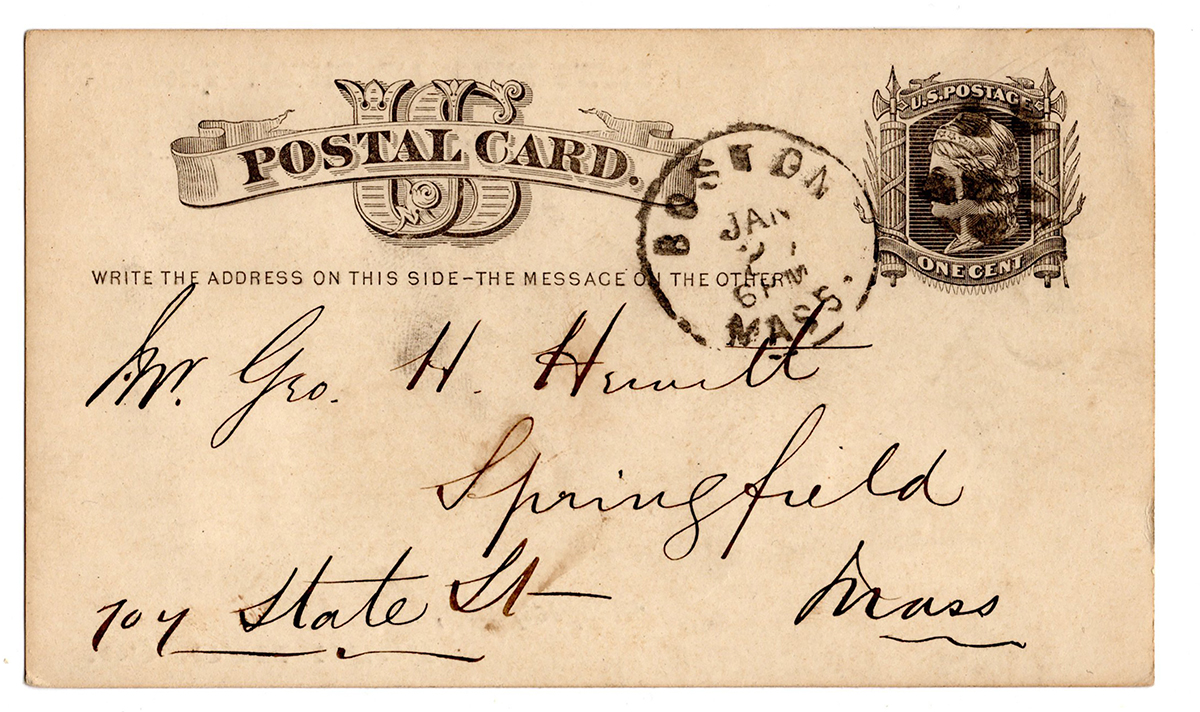 US
POSTAL CARD.
U.S. POSTAGE
ONE CENT
BOSTON
JAN
2
6 PM
MASS.
WRITE THE ADDRESS ON THIS SIDE–THE MESSAGE ON THE OTHER
Mr. Geo. H. Hewitt
Springfield
State St
Mass